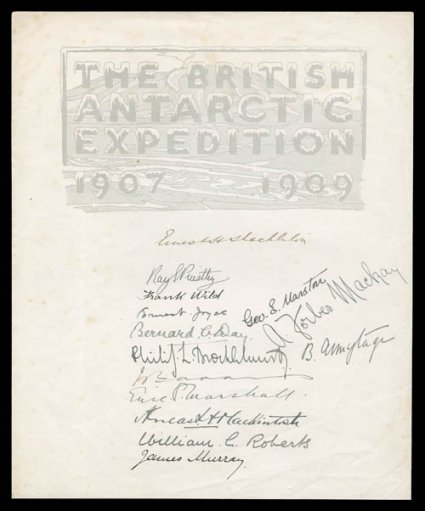 THE BRITISH
ANTARCTIC
EXPEDITION
1907 1909
Ernest H Shackleton
Ray E Priestley
Frank Wild
Geo. E. Marston
A Forbes Mackay
Ernest Joyce
Bernard C. Day
B. Armytage
Philip L. Brocklehurst.
Eric S. Marshall.
Aeneas Mackintosh
William C. Roberts
James Murray.